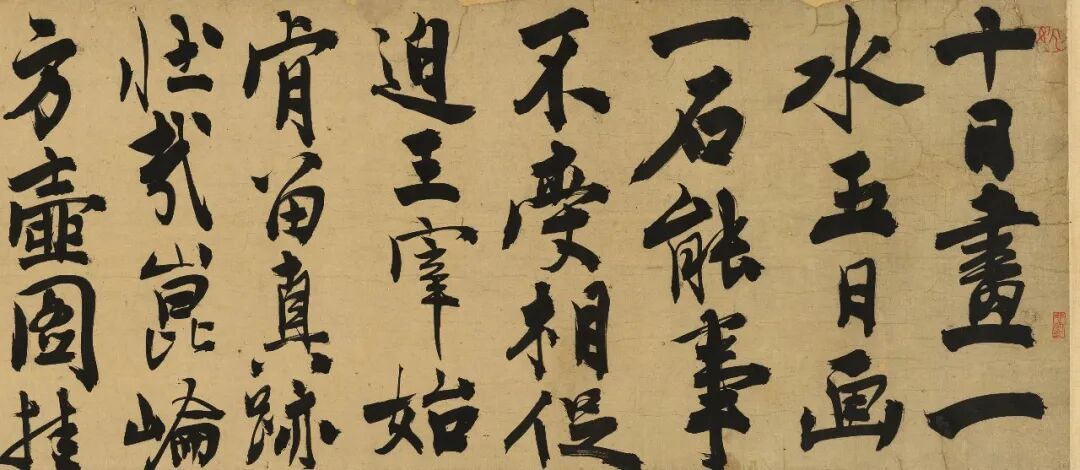 十日畫一
水五月画
一石能事
不受相促
迫王宰始
肯留真跡
壯哉崑崘
方壺圖挂